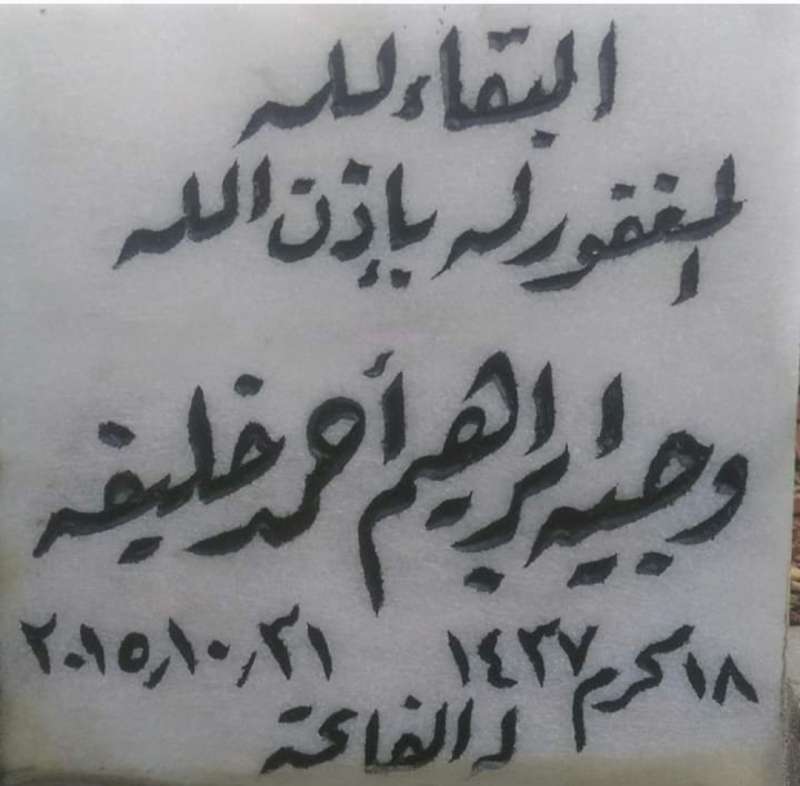 البقاء لله
المغفور له بإذن الله
وجيه ابراهيم أحمد خليفه
١٨ محرم ١٤٣٧ ٢٠١٥٫١٠٫٣١
له الفاتحة